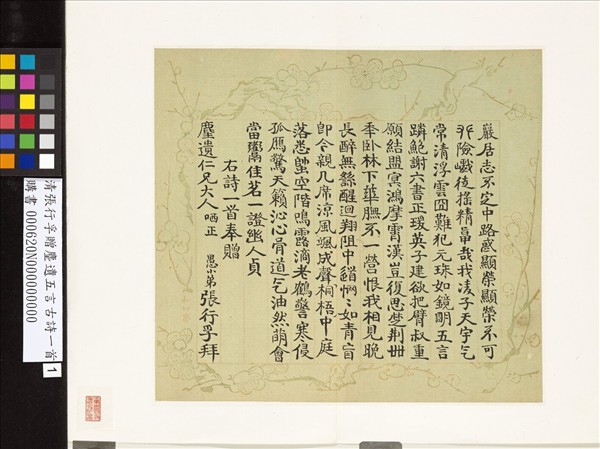 巖居志不定中路惑顯榮顯榮不可
險巇徒搖精哉我淩子天宇气
常清浮雲罔難犯元珠如鏡朙五言
躋鮑謝六書正瑗英子建欲把臂叔重
願結盟冥鴻摩霄漢豈復思楚荆卌
季臥林下華膴不一營恨我相見晚
長醉無繇醒迴翔阻中緧惘〻如青盲
卽今親几席涼風颯成聲桐梧中庭
落悉蟚空階鳴露滴老鶴警寒侵
孤鴈驚天籟沁心骨道气油然萌會
當鬻佳茗一證幽人貞
右詩一首奉贈
麈遺仁兄大人哂正
愚小弟張行孚拜
清張行孚贈麈遺五言古詩一首
1
購書 000620N000000000